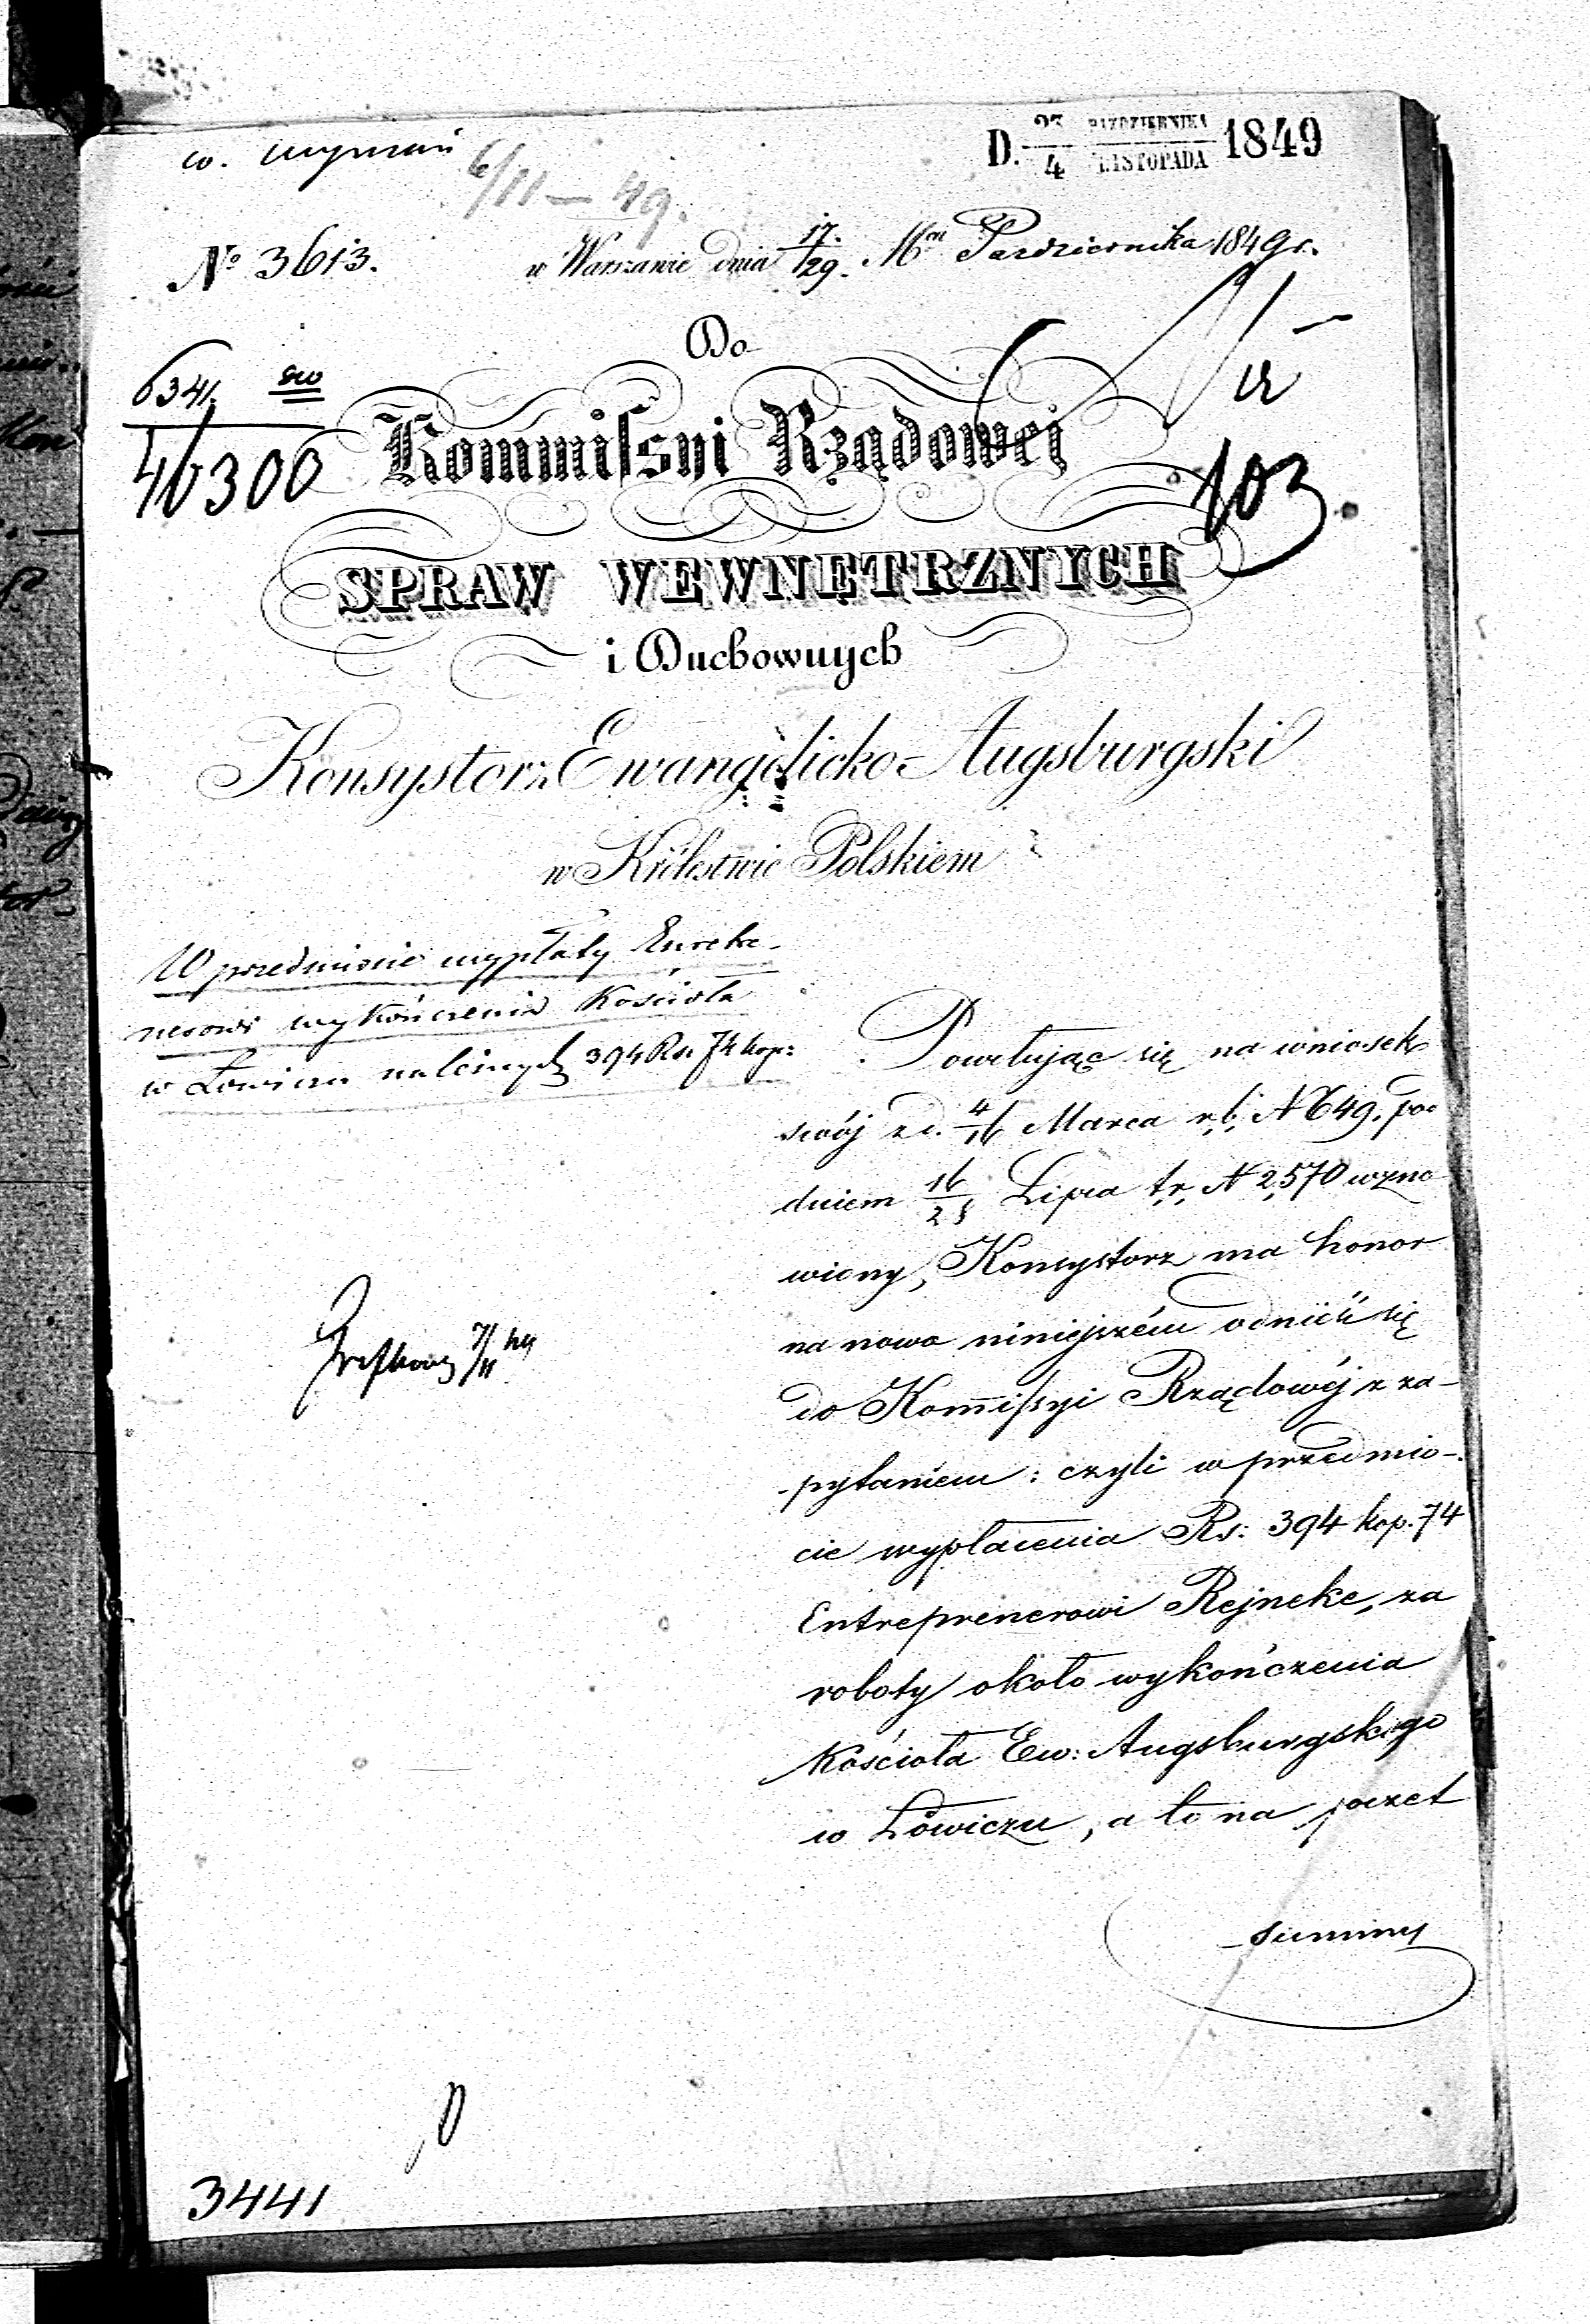 D. 23/4 PAZDZIERNIKA/LISTOPADA 1849
6/11 — 49.
No 3613.
w Warszawie dnia 17/29. Mca Pazdziernika 1849 r.
Do
6341.
46300
Kommissyi Rządowej
103
SPRAW WEWNĘTRZNYCH
i Duchownych
Konsystorz Ewangelicko-Augsburgski
w Królestwie Polskiem
W przedmiocie wypłaty Entrepre-
nerowi wykończenia Kościoła
w Łowiczu należnych 394 Rs. 74 kop:
Powołując się na wniosek
swój z d. 4/16 Marca r. b. N 649. pod
dniem 16/28 Lipca t. r. N 2,570 wzno
wiony, Konsystorz ma honor
na nowo niniejszém odnieść się
do Kommissyi Rządowéj z za-
pytaniem: czyli w przedmio-
cie wypłacenia Rs: 394 kop. 74
Entreprenerowi Rejneke, za
roboty około wykończenia
Kościoła Ew: Augsburgskiego
w Łowiczu, a to na poczet
summy
3441